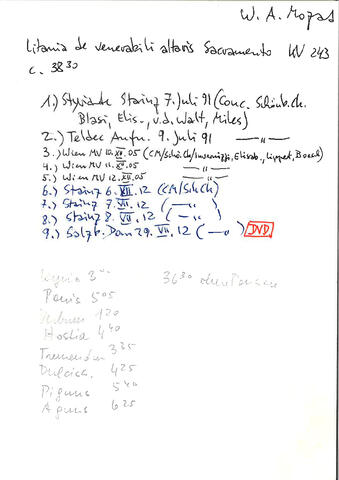 W. A. Mozart
Litania de venerabili altaris Sacramento KV 243
c. 38 30
1.) Styriarte Stainz 7. Juli 91 (Conc. Schönb. Ch.
Blasi, Elis., v.d. Walt, Miles)
2.) Teldec Aufn. 9. Juli 91 —"—
3.) Wien MV 10. XII. 05 (CM/Schö.Ch/Invernizzi, Elisab., Lippert, Boesch)
4.) Wien MV 11. XII. 05 —"—
5.) Wien MV 12. XII. 05 —"—
6.) Stainz 6. VII. 12 (CM/SchCh)
7.) Stainz 7. VII. 12 (—"—)
8.) Stainz 8. VII. 12 (—"—)
9.) Salzb. Dom 29. VII. 12 (—"—) DVD
Kyrie 3 36 30 ohne Pausen
Panis 5 05
Verbum 1 20
Hostia 4 40
Tremendum 3 35
Dulciss. 4 25
Pignus 5 40
Agnus 6 25